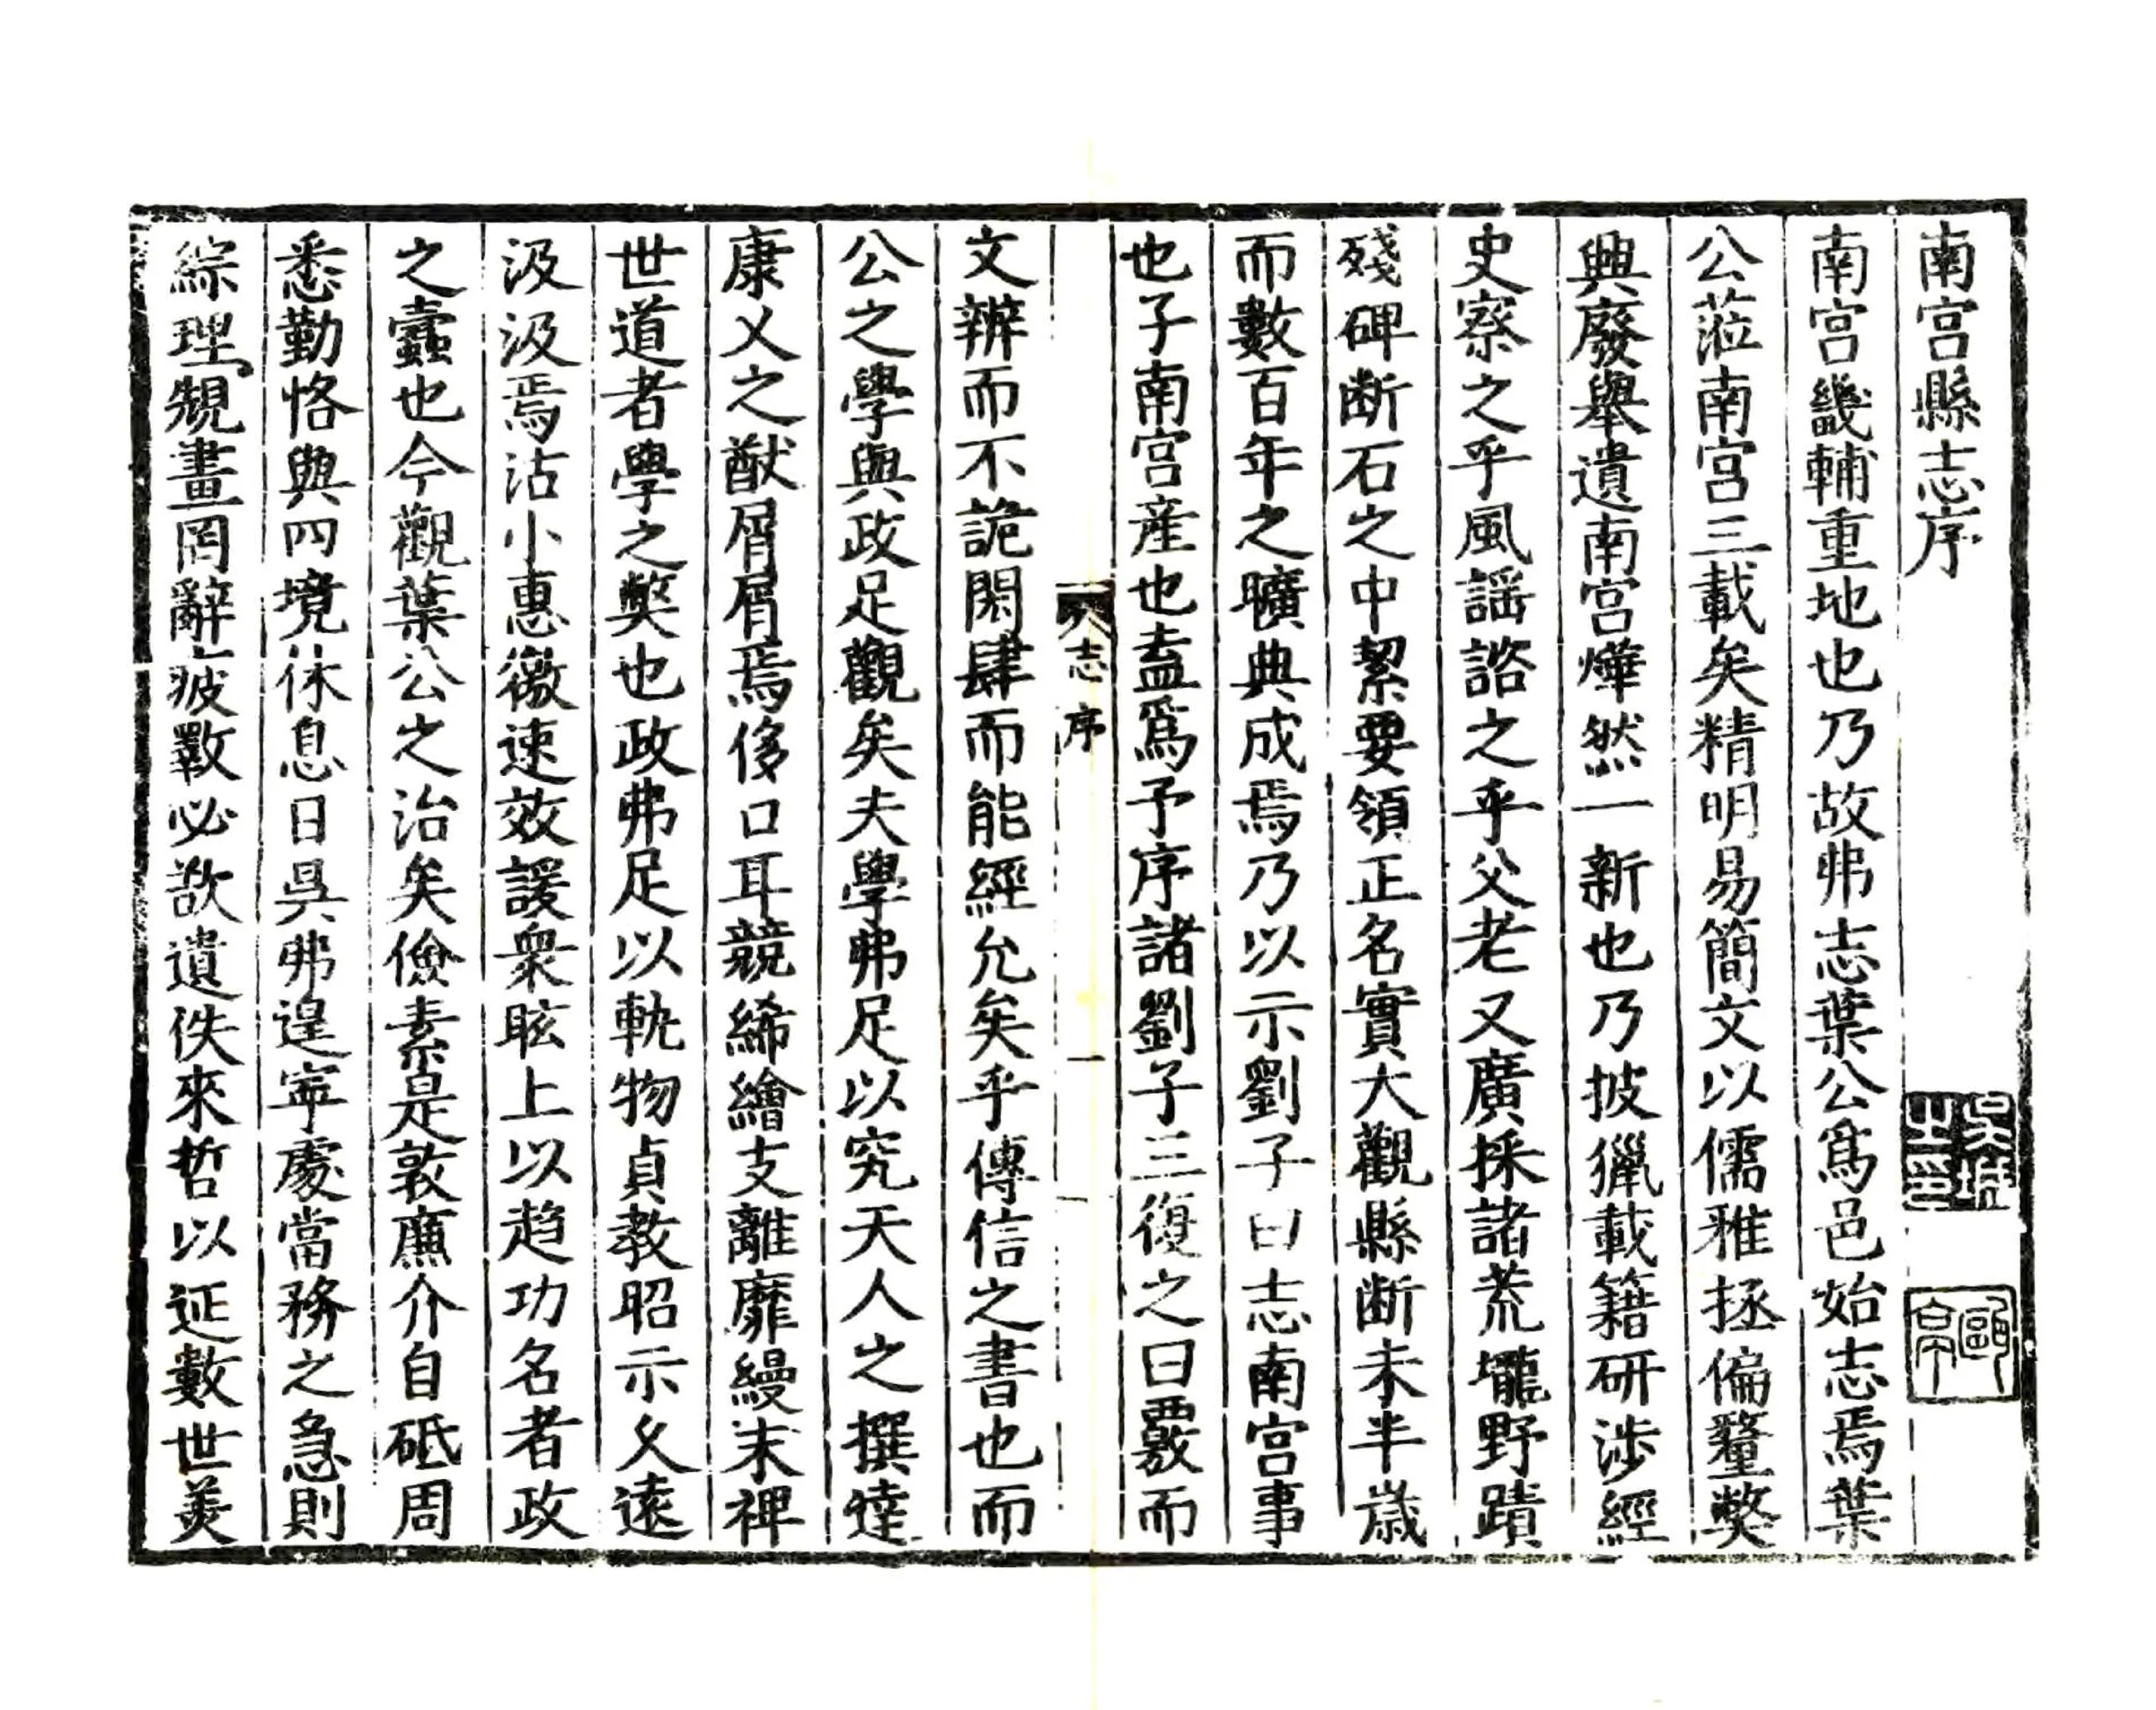 南宮縣志序
南宮畿輔重地也乃故弗志葉公爲邑始志焉葉
公蒞南宮三載矣精明易簡文以儒雅拯偏釐獘
興廢舉遺南宮燁然一新也乃披獵載籍研渉經
史察之乎風謡諮之乎父老又廣採諸荒壠野蹟
殘碑断石之中絜要領正名實大觀縣断未半歳
而數百年之曠典成焉乃以示劉子曰志南宮事
也子南宮産也盍爲予序諸劉子三復之曰覈而
志序
一
文辨而不詭閎肆而能經允矣乎傳信之書也而
公之學與政足觀矣夫學弗足以究天人之撰達
康乂之猷屑屑焉侈口耳競絺繪支離靡縵末裨
世道者學之獘也政弗足以軌物貞教昭示久遠
汲汲焉沽小惠徼速效諼衆眩上以趋功名者政
之蠹也今觀葉公之治矣儉素是敦廉介自砥周
悉勤恪與四境休息日昃弗遑寧處當務之急則
綜理覙畫罔辭疲斁必欲遺佚來哲以延數世美